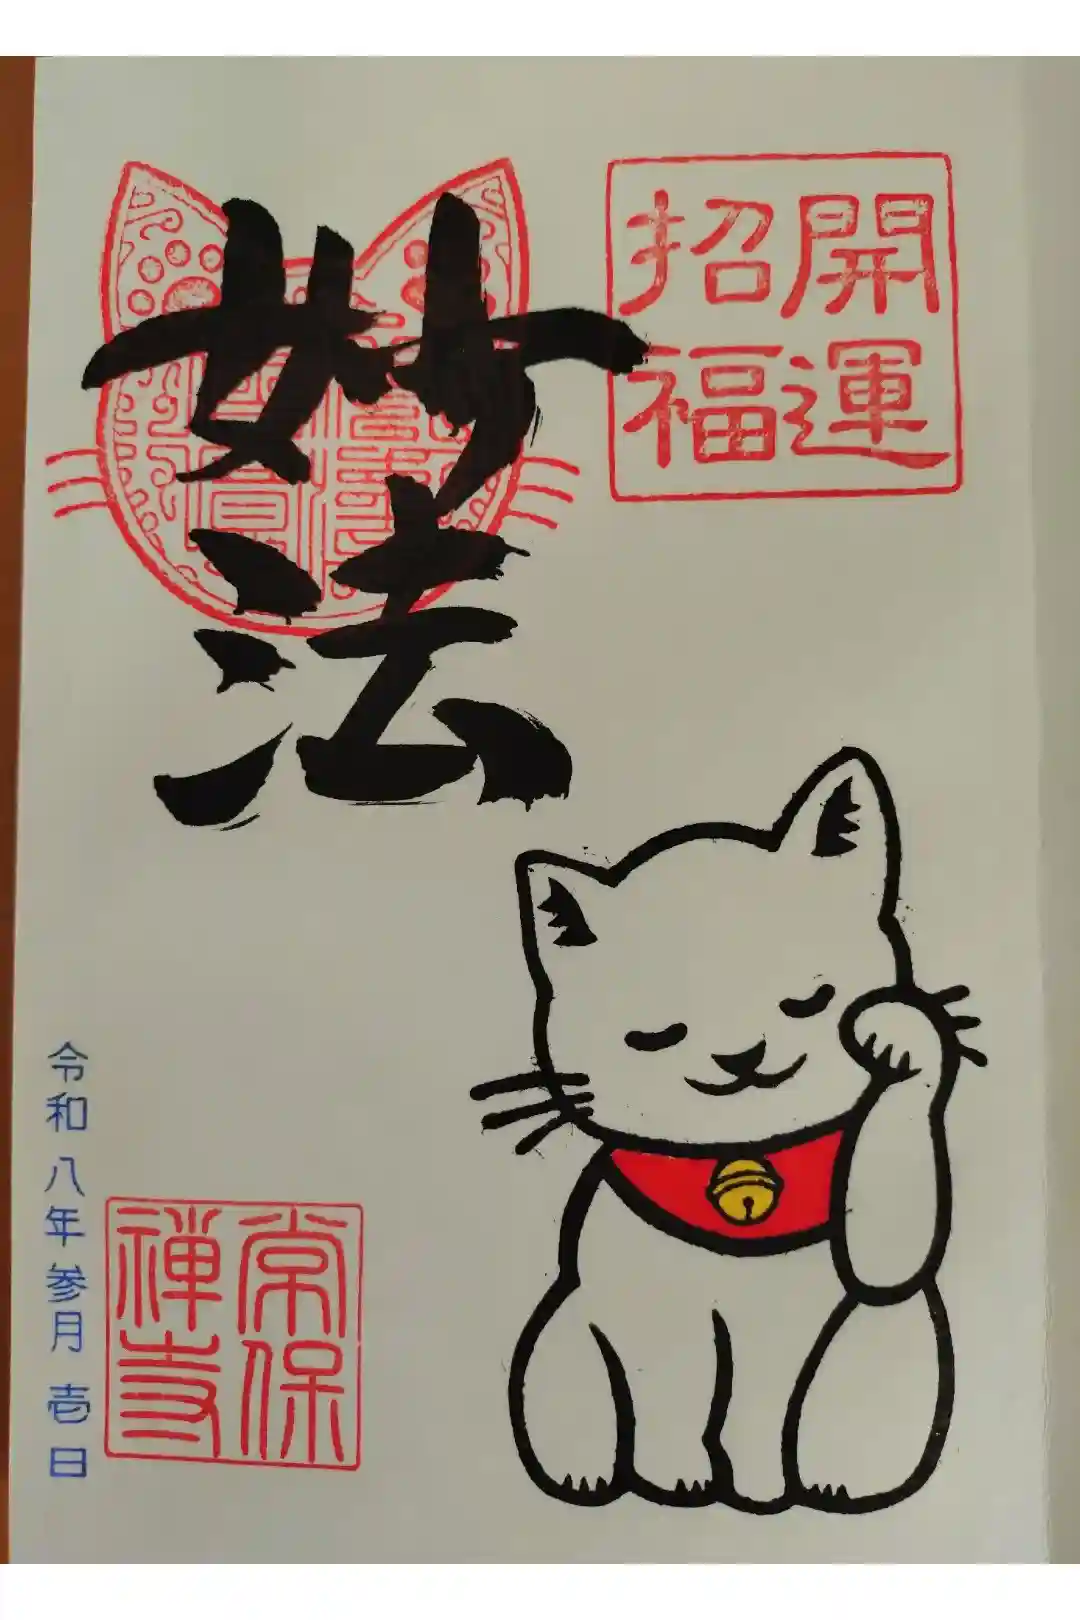 開運
招福
妙法
常保
禅寺
令和八年参月壱日